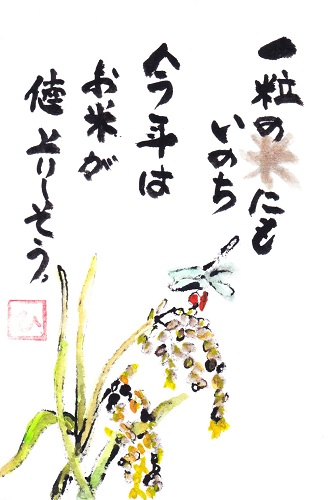 一粒の米にも
いのち
今年は
お米が
値上りしそう。
ひ